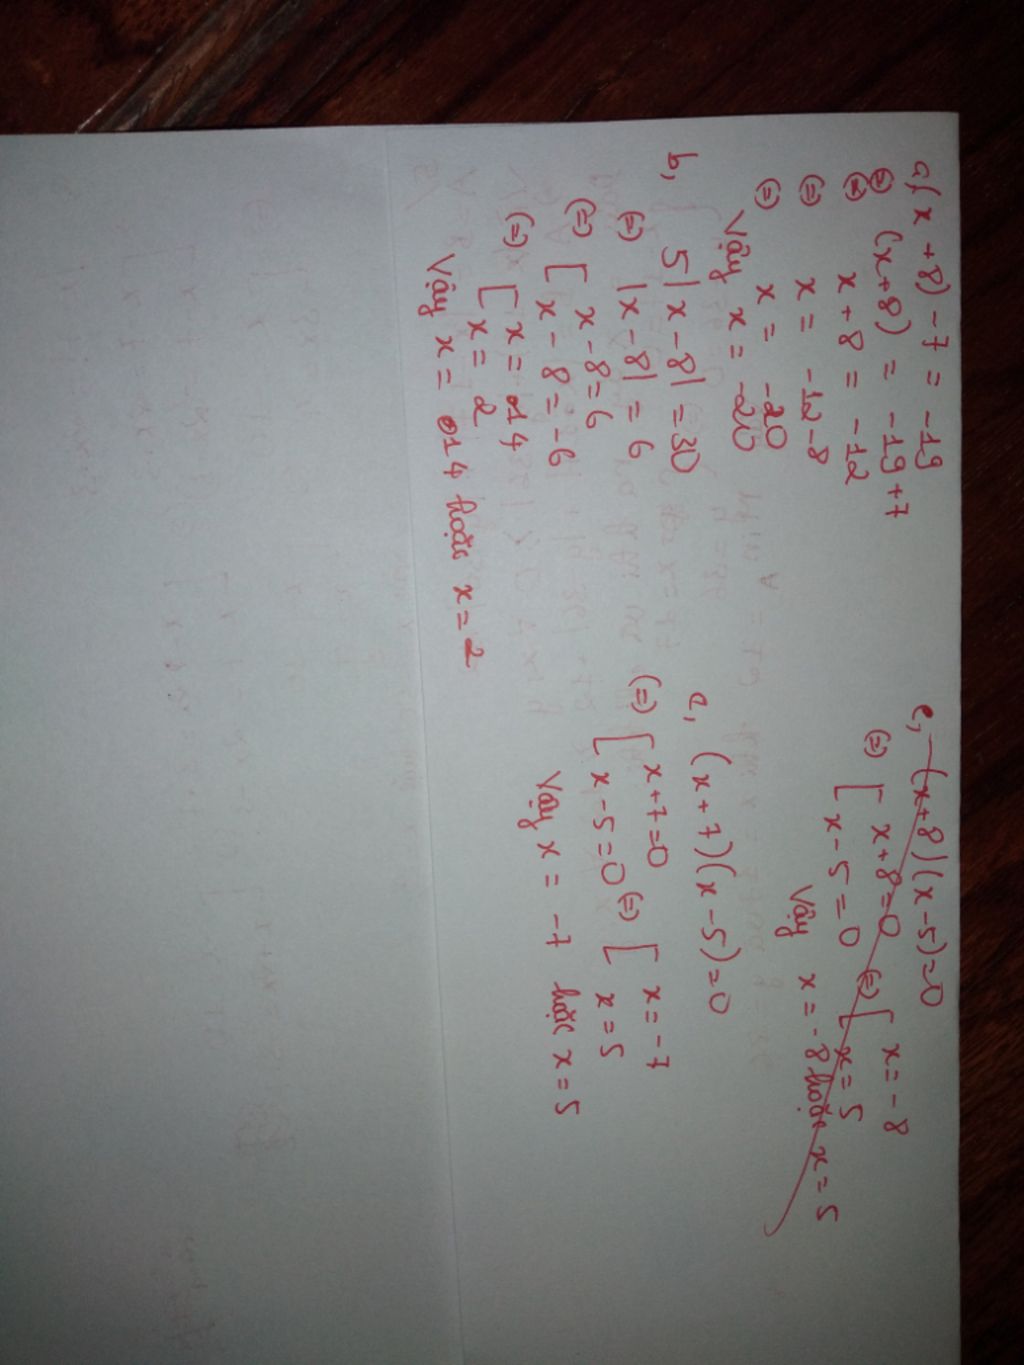 a/ (x + 8) - 7 = -19
(=) (x+8) = -19+7
(=) x + 8 = -12
(=) x = -12-8
(=) x = -20
Vậy x = -20
b, 5|x-8| = 30
(=) |x-8| = 6
(=) [ x-8=6
x-8=-6
(=) [ x=14
x=2
Vậy x= 14 hoặc x=2
c, (x+8)(x-5)=0
(=) [ x+8=0 (=) [ x=-8
x-5=0 x=5
Vậy x=-8 hoặc x=5
c, (x+7)(x-5)=0
(=) [ x+7=0 (=) [ x=-7
x-5=0 x=5
Vậy x= -7 hoặc x=5